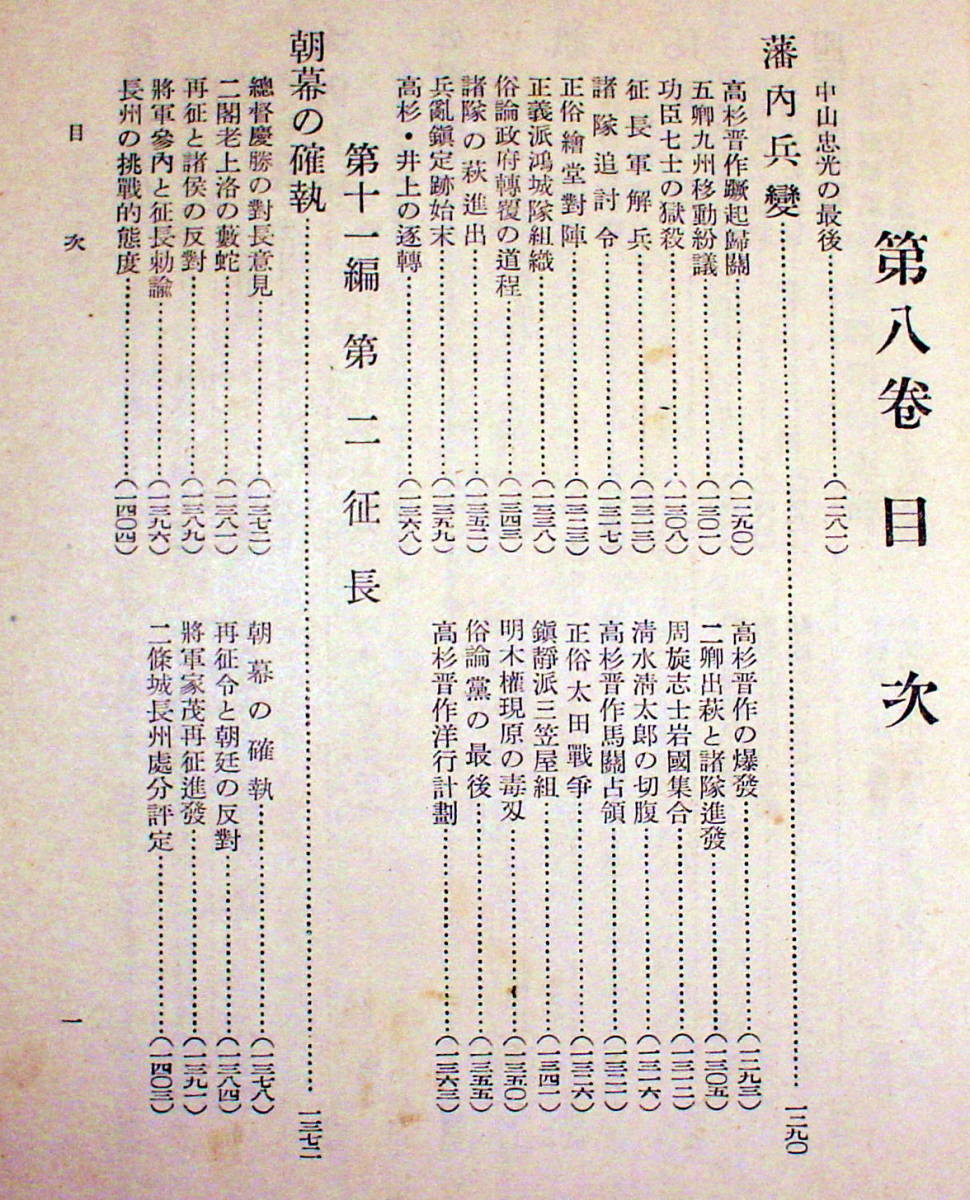 第八卷目次
中山忠光の最後……(一二八一)
藩內兵變……一二九〇
高杉晋作蹶起歸關……(一二九〇)
高杉晋作の爆發……(一二九三)
五卿九州移動紛議……(一三〇一)
二卿出萩と諸隊進發……(一三〇五)
功臣七士の獄殺……(一三〇八)
周旋志士岩國集合……(一三一二)
征長軍解兵……(一三一三)
淸水淸太郎の切腹……(一三一六)
諸隊追討令……(一三一七)
高杉晋作馬關占領……(一三二一)
正俗繪堂對陣……(一三二三)
正俗太田戰爭……(一三二六)
正義派鴻城隊組織……(一三三八)
鎭靜派三笠屋組……(一三四一)
俗論政府轉覆の道程……(一三四三)
明木權現原の毒刄……(一三五〇)
諸隊の萩進出……(一三五二)
俗論黨の最後……(一三五五)
兵亂鎭定跡始末……(一三五九)
高杉晋作洋行計劃……(一三六三)
高杉・井上の逐轉……(一三六八)
第十一編 第二征長
朝幕の確執……一三七二
總督慶勝の對長意見……(一三七二)
朝幕の確執……(一三七八)
二閣老上洛の藪蛇……(一三八一)
再征令と朝廷の反對……(一三八四)
再征と諸侯の反對……(一三八九)
將軍家茂再征進發……(一三九一)
將軍參內と征長勅諭……(一三九六)
二條城長州處分評定……(一四〇三)
長州の挑戰的態度……(一四〇四)
目次
一